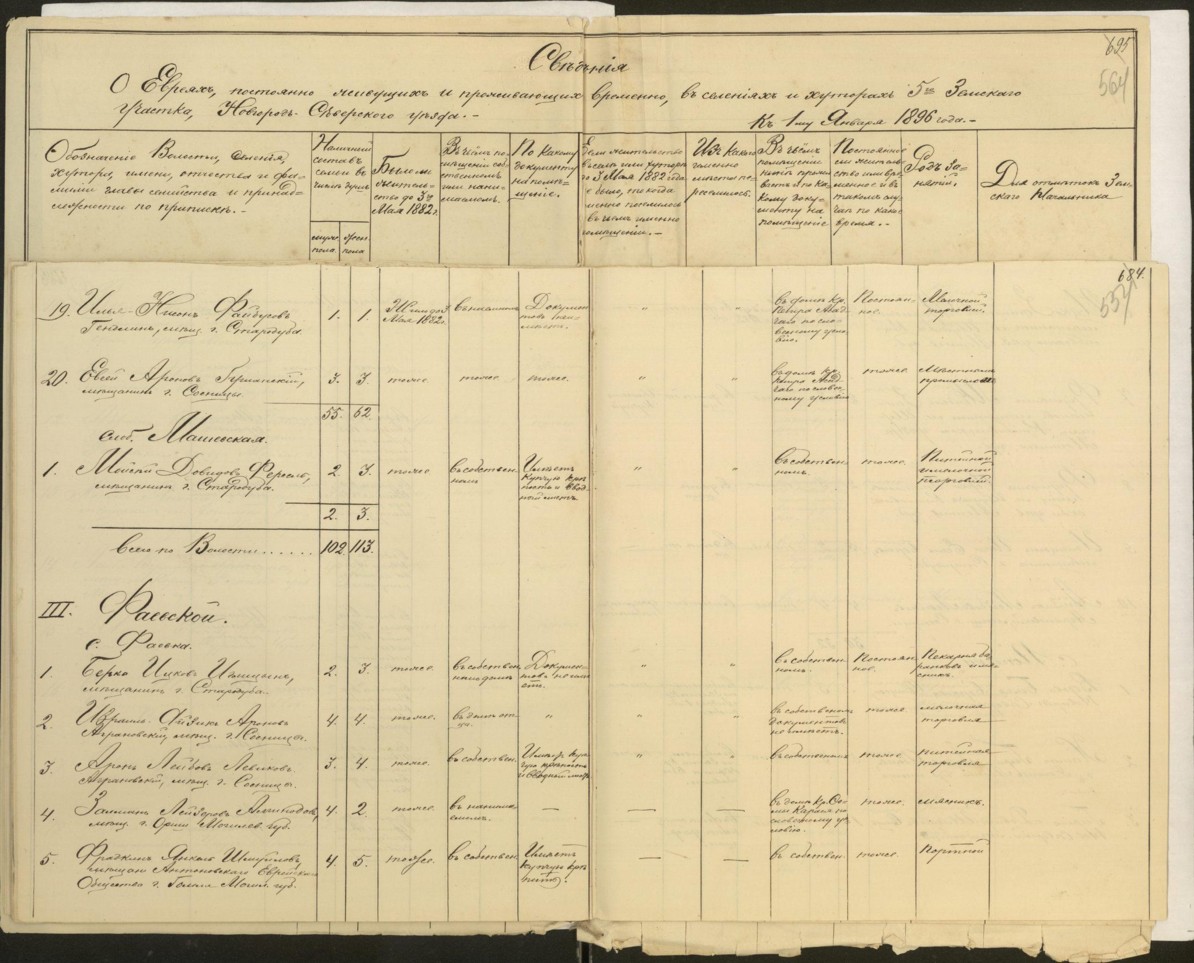 695
564
Свѣдѣнія
О Евреяхъ, постоянно живущихъ и проживающихъ временно, въ селеніяхъ и хуторахъ 5го Земскаго
Участка, Новгородъ-Сѣверскаго уѣзда.-
Къ 1му Января 1896 года.-
Обозначеніе Волости, селенія,
хутора, имени, отчества и фа-
миліи главы семейства и принад-
лежности по припискѣ.-
Наличный
составъ
семьи
мужс.
пола
женс.
пола
Было ли
житель-
ство до 3го
Мая 1882 г.
Въ чьемъ по-
мѣщеніи соб-
ственномъ
или нани-
маемомъ.
По какому
документу
на помѣ-
щеніе.
Если жительство
въ селѣ или хуторѣ
до 3 Мая 1882 года
не было, то когда
именно поселился
и въ чьемъ именно
помѣщеніи.-
Изъ какой
именно
мѣстности пе-
реселился.
Въ чьемъ
помѣщеніи
нынѣ прожи-
ваетъ и по ка-
кому доку-
менту на
помѣщеніе
Постоянное
ли житель-
ство или вре-
менное и въ
такомъ слу-
чаѣ по какое
время.-
Родъ за-
нятій.
Для отмѣтокъ Зем-
скаго Начальника
684.
557
19. Файвуровъ
мѣщ. г. Стародуба.
1. 1. Жилъ до 3
Мая 1882 г.
въ наемномъ
Докумен-
товъ не и-
мѣетъ.
" "
въ домѣ Кр.
по сло-
весному усло-
вію.
Постоян-
ное.
Мѣлочной
торговлей.
20. Евсей Ароновъ
мѣщанинъ г. Сосницы.
3. 3. тоже. тоже. тоже. " "
въ домѣ Кр.
по словес-
ному условію
тоже.
55. 62.
слоб. Машевская.
1. Давидовъ
мѣщанинъ г. Стародуба.
2. 3. тоже.
въ собствен-
номъ
Имѣетъ
купчую крѣ-
пость и ввод-
ный листъ
" "
въ собствен-
номъ.
тоже.
Питейной
торговлей.
2. 3.
Всего по Волости......
102. 113.
III. Фаевской.
с. Фаевка.
1. Берко Ицковъ
мѣщанинъ г. Стародуба.
2. 3. тоже.
въ собствен-
номъ домѣ
Докумен-
товъ не имѣ-
етъ.
" "
въ собствен-
номъ.
Постоян-
ное.
2. Израиль-Айзикъ Ароновъ
Аграновскій, мѣщ. г. Сосницы.
4. 4. тоже. " " "
въ собственномъ
документовъ
не имѣетъ.
тоже
мѣлочная
торговля
3. Аронъ Лейбовъ
Аграновскій, мѣщ. г. Сосницы.
3. 4. тоже. въ собствен.
Имѣетъ куп-
чую крѣпость
и вводный листъ
" "
въ собственномъ
тоже.
питейная
торговля
4. Залманъ Лейзеровъ
мѣщ. г. Орши Могилев. губ.
4. 2. тоже.
въ наним-
емомъ.
— —
въ домѣ Кр.
словесному у-
словію.
тоже.
мясникъ.
5. Фрадкинъ Янкель Шмуйловъ,
мѣщан. Антоновскаго Еврейска-
Общества г. Гомеля Могил. губ.
4. 5. тоже. въ собствен.
Имѣетъ
купчую крѣ-
пость.
— —
въ собствен.
тоже.
Портной